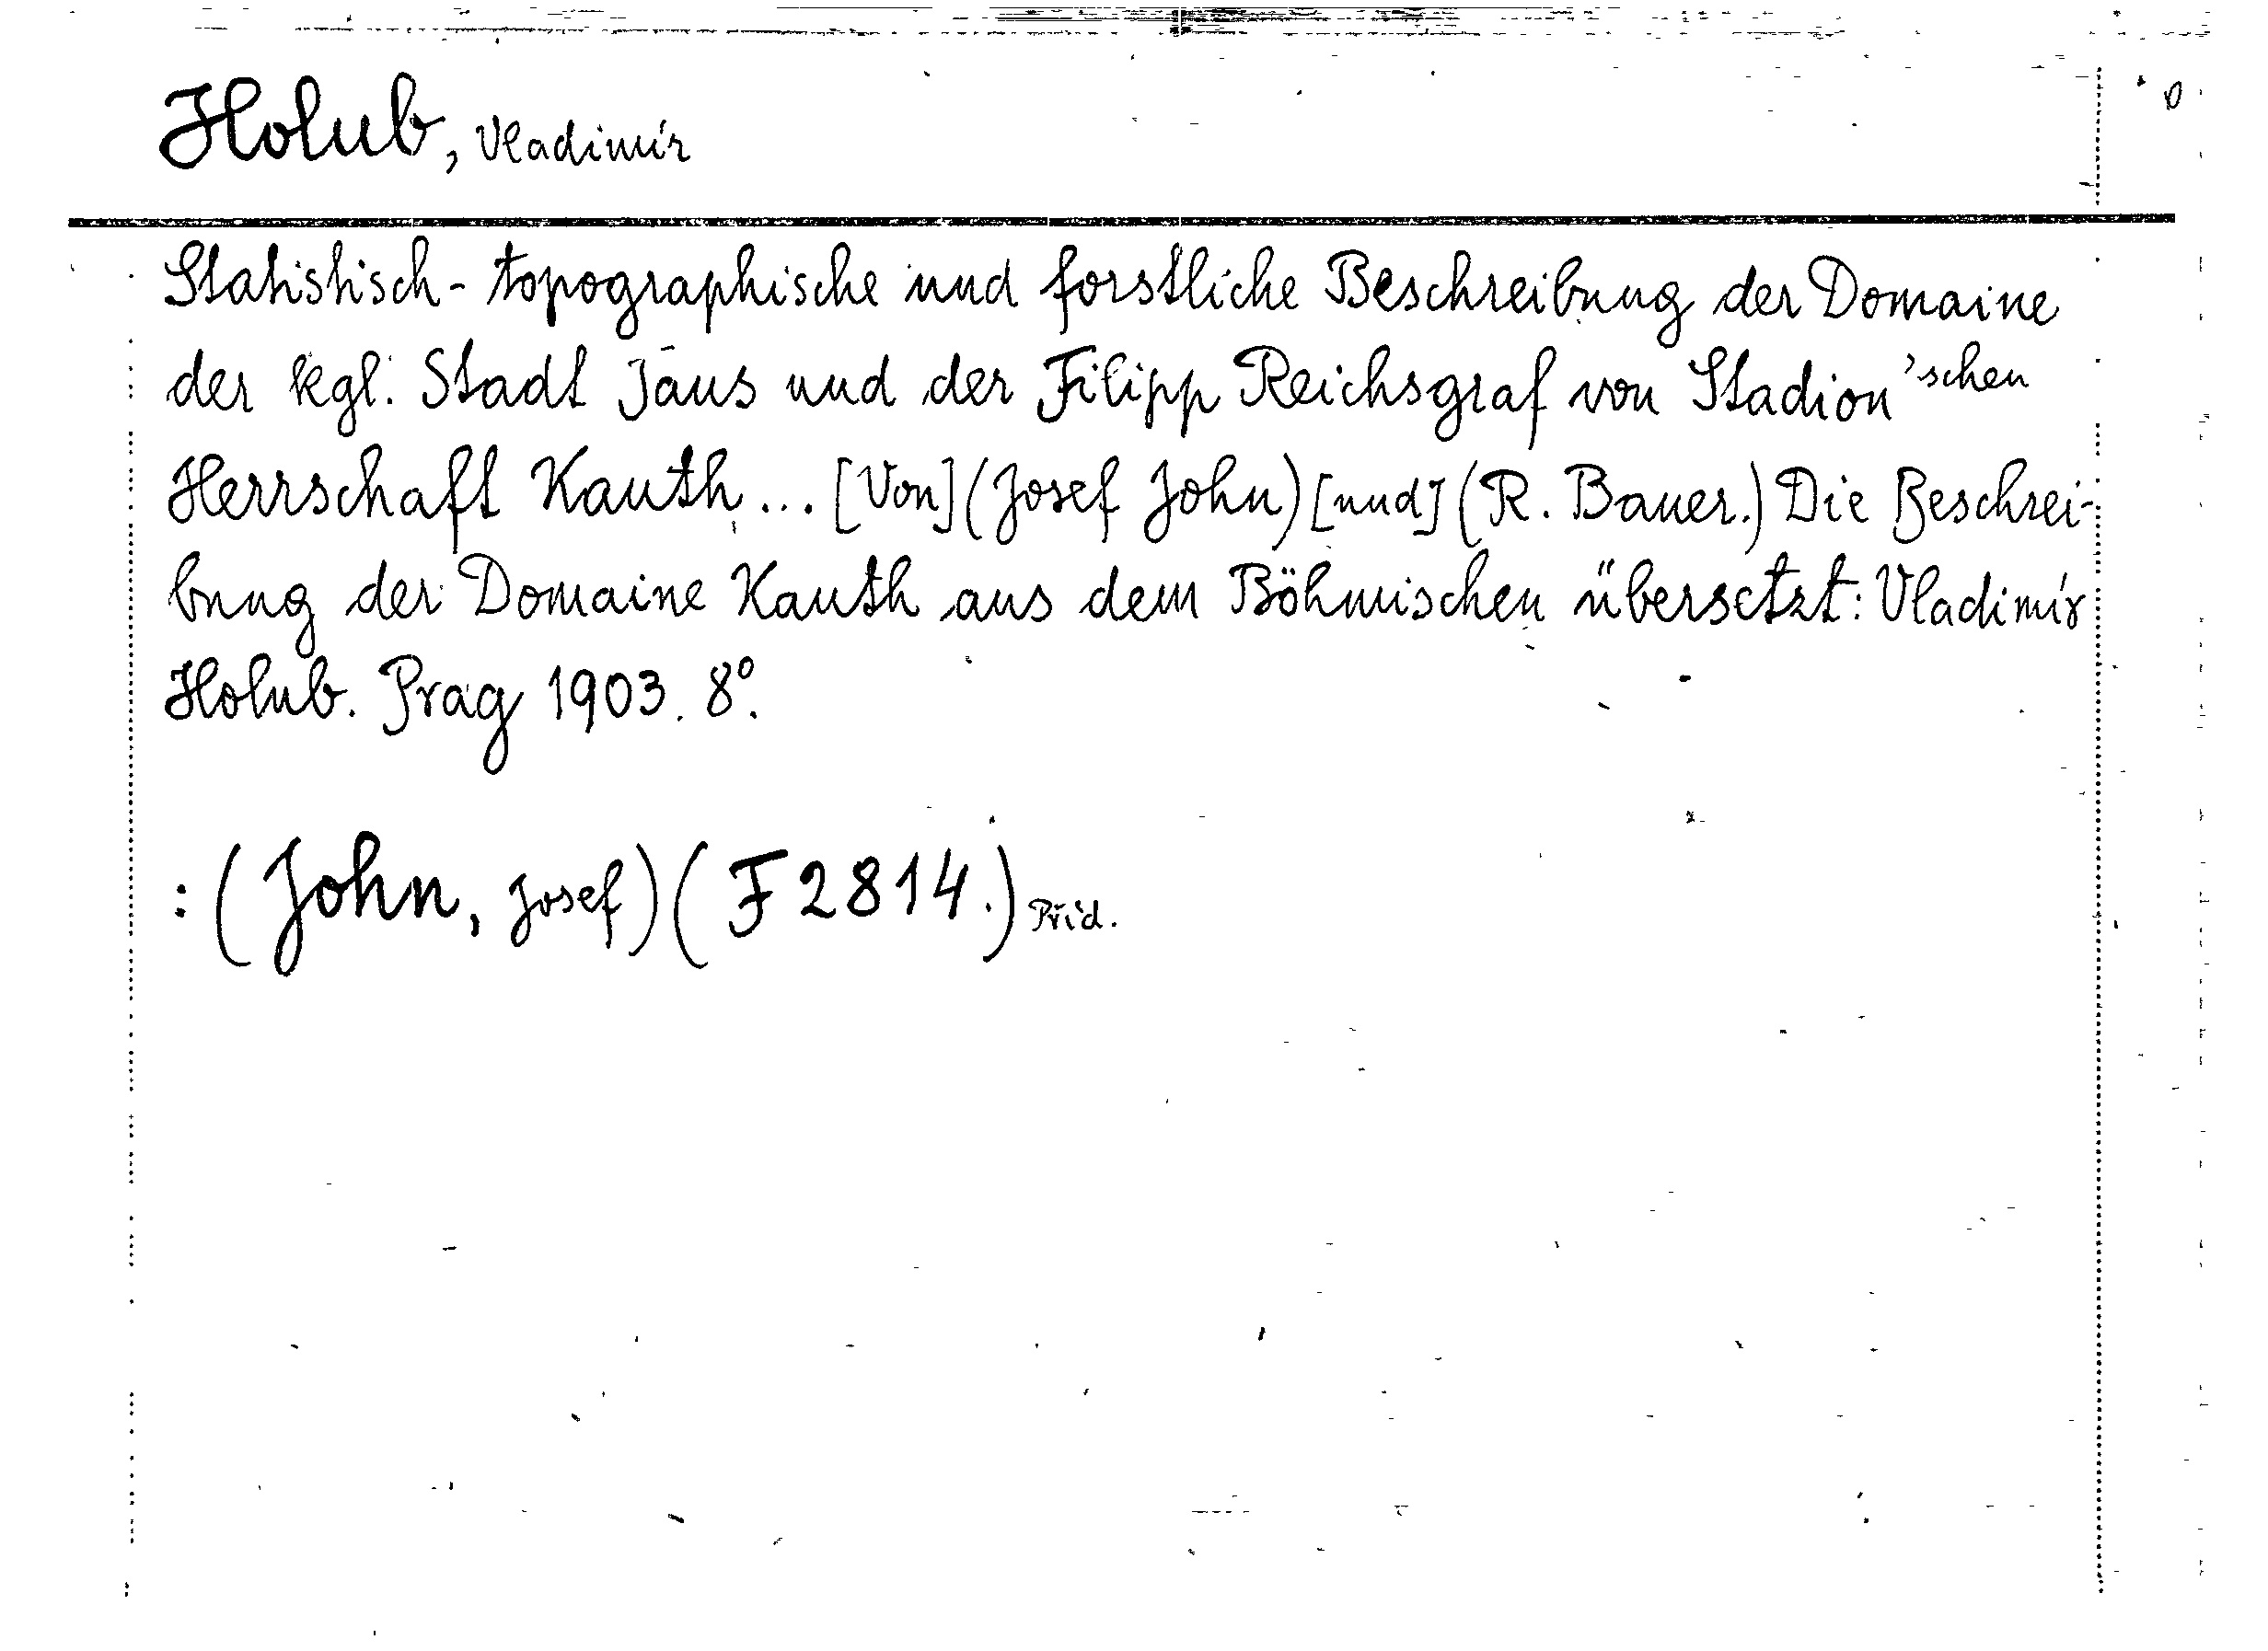 Holub, Vladimír
Statistisch-topographische und forstliche Beschreibung der Domaine
der kgl. Stadt Jaus und der Filipp Reichsgraf von Stadion'schen
Herrschaft Kauth... [Von] (Josef John) [und] (R. Bauer.) Die Beschrei-
bung der Domaine Kauth aus dem Böhmischen übersetzt: Vladimír
Holub. Prag 1903. 8°.
: (John, Josef) (F 2814.) Příd.